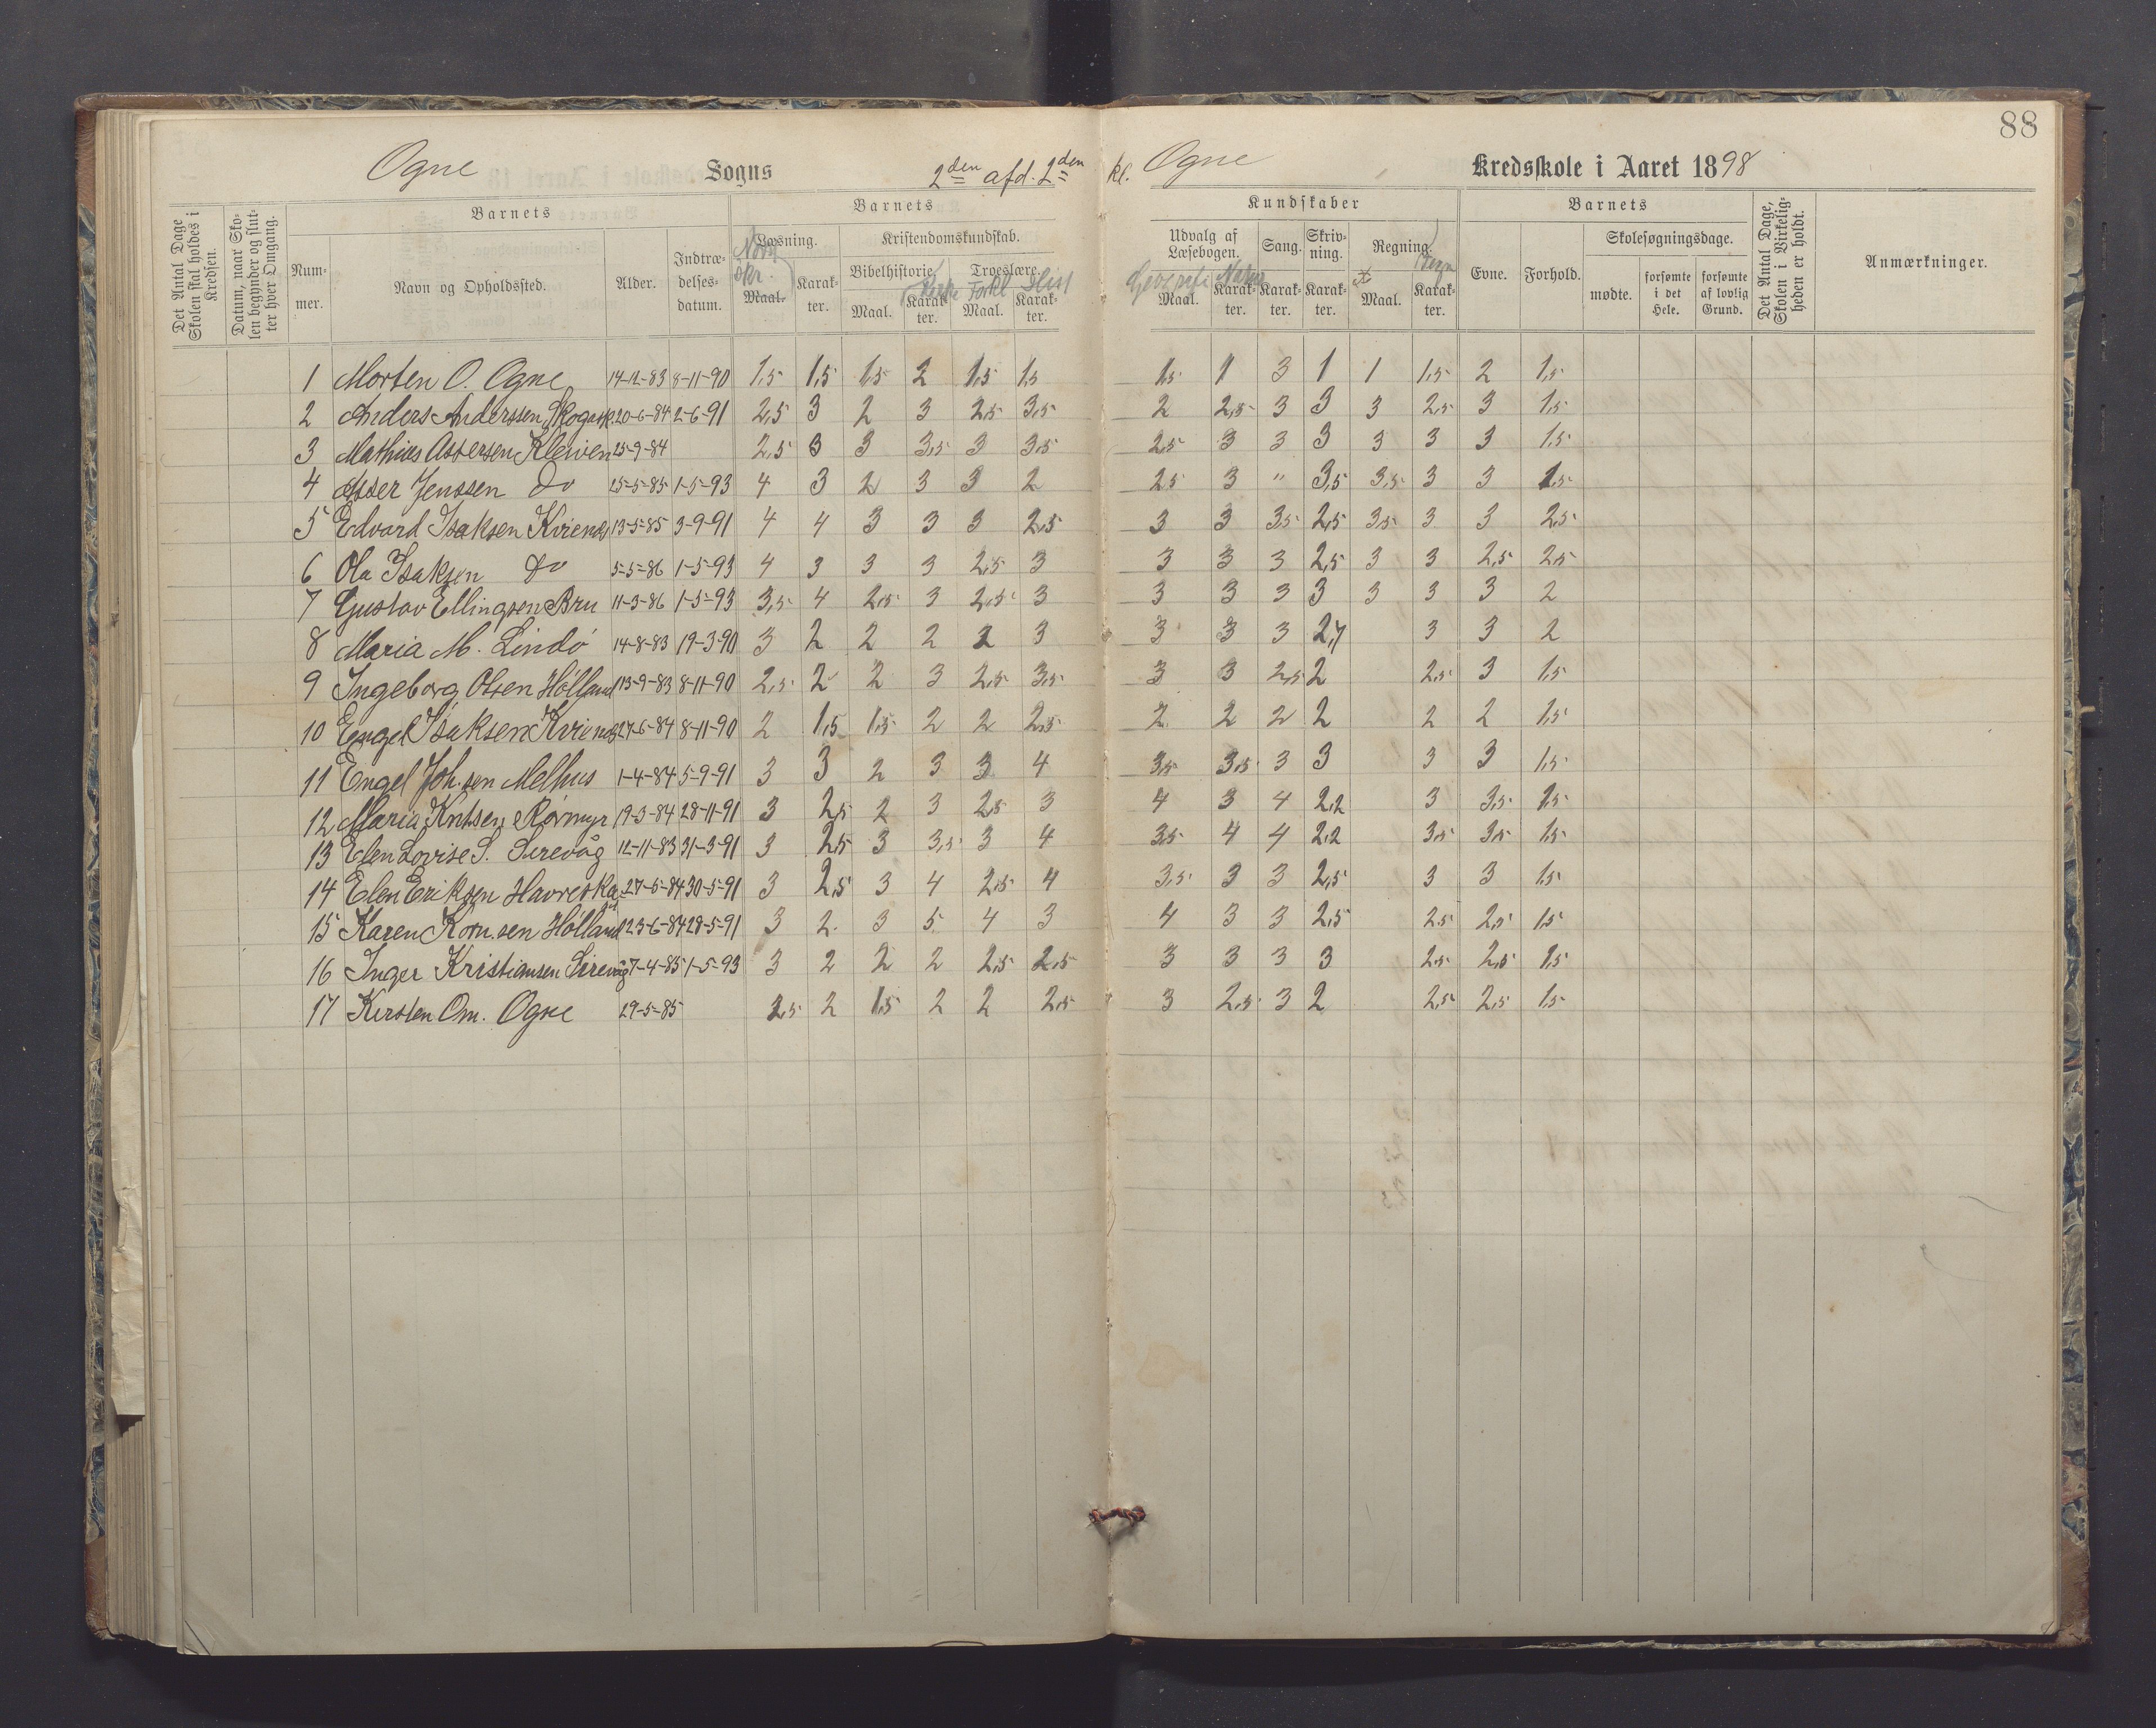 88
Ogne Sogns 2den afd. 2den kl. Ogne Kredsskole i Aaret 1898
Det Antal Dage Skolen skal holdes i Kredsen.
Datum, naar Skolen begynder og slutter hver Omgang.
Barnets
Nummer.
Navn og Opholdssted.
Alder.
Indtrædelsesdatum.
Barnets
Læsning.
Norsk skr.
Maal.
Karakter.
Kristendomskundskab.
Bibelhistorie.
Maal.
Karakter.
Troeslære.
Forkl Hist
Maal.
Karakter.
Kundskaber
Udvalg af Læsebogen.
Geografi Natur
Maal.
Karakter.
Sang.
Karakter.
Skrivning.
Karakter.
Regning.
Maal.
Karakter.
Barnets
Evne.
Forhold.
Skolesøgningsdage.
mødte.
forsømte i det Hele.
forsømte af lovlig Grund.
Det Antal Dage, Skolen i Virkeligheden er holdt.
Anmærkninger.
1 Morten O. Ogne 14-12-83 8-11-90 1,5 1,5 1,5 2 1,5 1,5 1,5 1 3 1 1 1,5 2 1,5
2 Anders Anderssen, Skogask. 20-6-84 2-6-91 2,5 3 2 3 2,5 3,5 2 2,5 3 3 3 2,5 3 1,5
3 Mathias Assersen Kleiven 25-9-84 2,5 3 3 3,5 3 3,5 2,5 3 3 3 3 3 3 1,5
4 Asser Jenssen do 25-5-85 1-5-93 4 3 2 3 3 2 2,5 3 " 3,5 3,5 3 3 1,5
5 Edvard Isaksen Kvienes 13-5-85 3-9-91 4 4 3 3 3 2,5 3 3 3,5 2,5 3,5 3 3 2,5
6 Ola Isaksen do 5-5-86 1-5-93 4 3 3 3 2,5 3 3 3 3 2,5 3 3 2,5 2,5
7 Gustav Ellingsen Bru 11-3-86 1-5-93 3,5 4 2,5 3 2,5 3 3 3 3 3 3 3 3 2
8 Maria M. Lindö 14-8-83 19-3-90 3 2 2 2 2 3 3 3 3 2,7 3 3 2
9 Ingeborg Olsen Hölland 13-9-83 8-11-90 2,5 2 2 3 2,5 3,5 3 3 2,5 2 2,5 3 1,5
10 Engel Isaksen Kvienes 27-6-84 8-11-90 2 1,5 1,5 2 2 2,5 2 2 2 2 2 2 1,5
11 Engel Joh.sen Melhus 1-4-84 5-9-91 3 3 2 3 3 4 3,5 3,5 3 3 3 3 1,5
12 Maria Kntsen Rörmyr 19-3-84 28-11-91 3 2,5 2 3 2,5 3 4 3 4 2,2 3 3,5 1,5
13 Elen Lovise S. Sirevåg 12-11-83 31-3-91 3 2,5 3 3,5 3 4 3,5 4 4 2,2 3,5 3,5 1,5
14 Elen Eriksen 27-5-84 30-5-91 3 2,5 3 4 2,5 4 3,5 3 3 2,5 3 3 1,5
15 Karen Korn.sen Hölland 23-6-84 28-5-91 3 2 3 5 4 3 4 3 3 2,5 2,5 2,5 1,5
16 Inger Kristiansen Sirevåg 7-4-85 1-5-93 3 2 2 2 2,5 2,5 3 3 3 3 2,5 2,5 1,5
17 Kirsten Om. Ogne 29-5-85 2,5 2 1,5 2 2 2,5 3 2,5 3 2 2,5 2,5 1,5